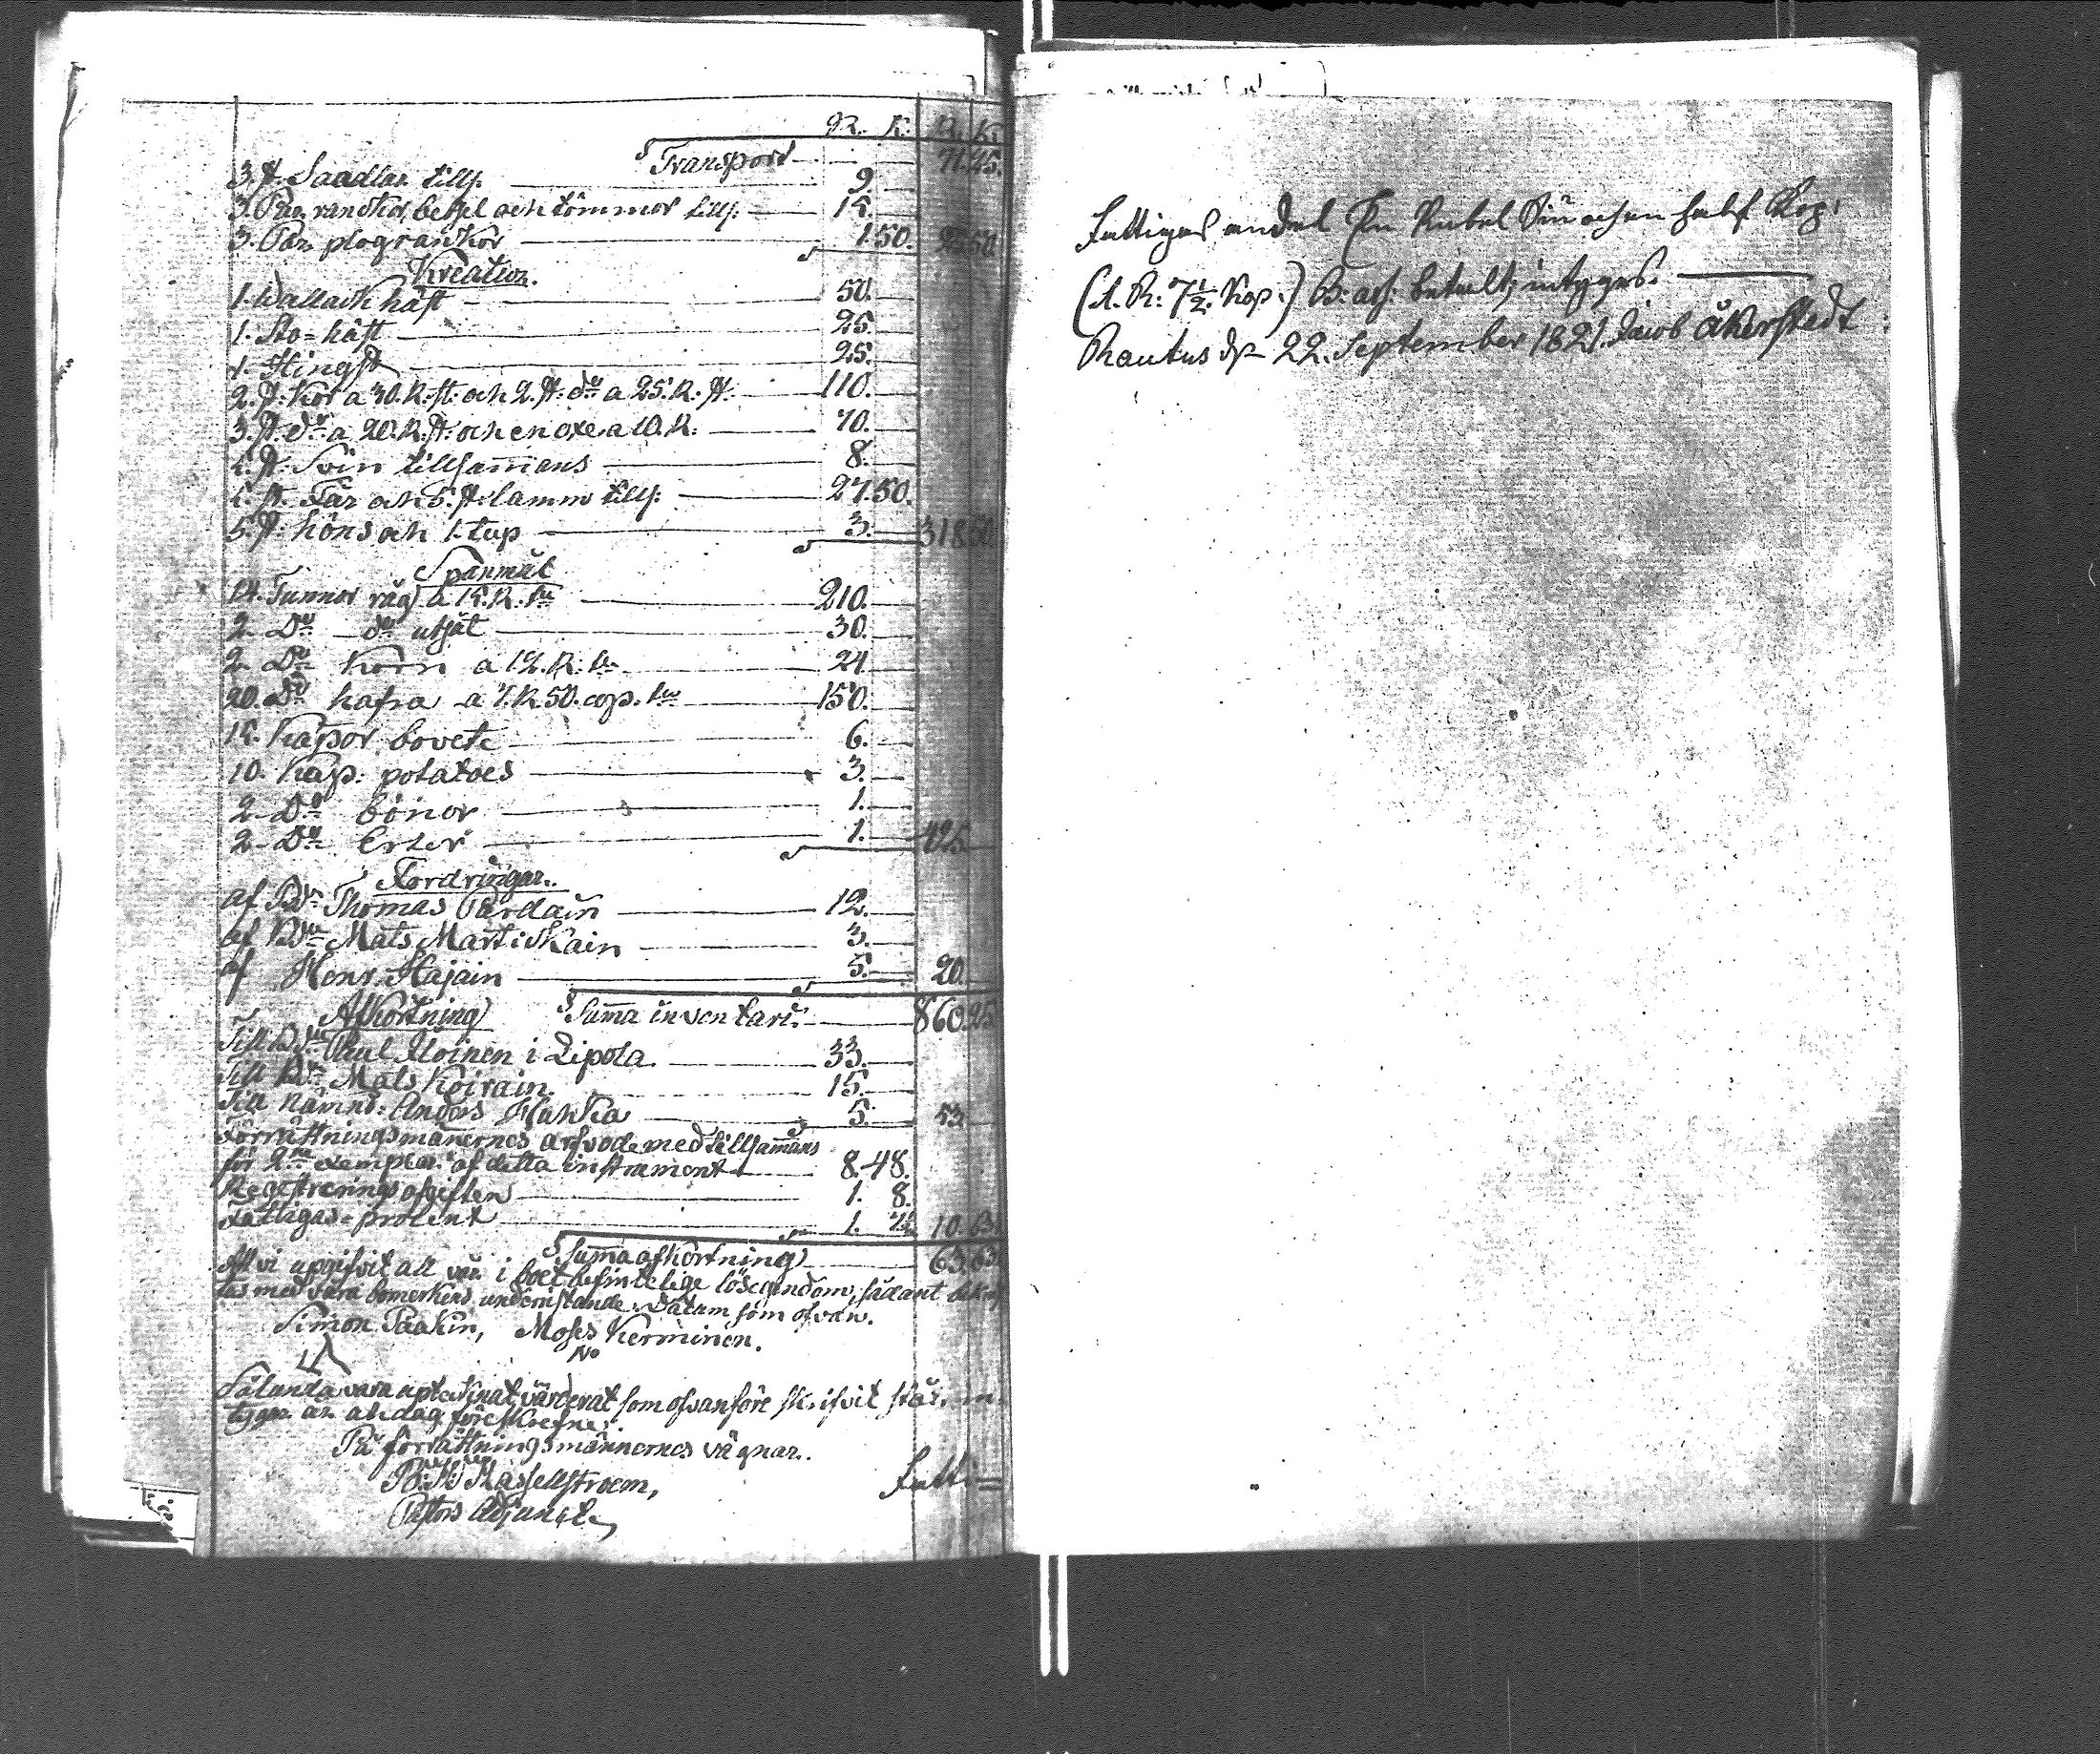 R. K. R. K.
Transport 71. 45.
3. st. Saadlar tills. 9.
3. Par rankor, betzel och tömmor tills. 15.
3. Par plogranckor 1. 50. 25. 50
Kreatur.
1. Wallack häst 50.
1. Sto-häst 25.
1. Hingst 25.
2. st: Kor a 30. R. st: och 2. st: do a 25. R. st: 110.
3. st. do a 20. R. st: och en oxe a 10. R. 70.
st: Svin tillsammans 8.
st. Får och 5. st: lamm tills: 27. 50.
5. st: höns och 1. tup 3. 318. 50
Spanmål
14. Tunnor råg a 15. R. tu 210.
2. Do do utsåt 30.
2. Do Korn a 12. R: tu 24.
20. Do hafra a 7. R 50. cop. tu 150.
15. Kappor bovete 6.
10. Kap: potatoes 3.
2. Do bönor 1.
2. Do Erter 1. 425
Fordringar.
af Bdn Thomas Pardain 12.
af Bdn Mats Martiskain 3.
af Henr. Hajain 5. 20.
Afkortning Summa inventarii 860. 95
Till Bdn Paul Iloinen i Lipola 33.
Till Bdn Mats Koirain 15.
Till nämnd: Anders Hanka 5. 53.
Förrättningsmännernes arfvode med tillsammans
för 2ne exemplar af detta instrument 8. 48.
Registrerings afgiften 1. 8.
Fattigas-procent 1. 7½ 10. 63
Summa afkortning 63. 63
At vi upgifvit all vår i boet befintelige lösegendom, sådant
tas med våra bomerkens underristande. Datum som ofvan.
Simon Paakin, Moses Kerminen.
Sålunda vara uptecknat, värderat som ofvanföre skrifvit står,
tygar år ah dag föreskrefne.
På förrättningsmännernes vägnar.
Hassellstroem,
Pastors Adjunct.
Fatti=
Fattigas andel En Rubel Siu och en half Kop:
(1. R: 7½ Kop.) B: ass: betalt; intygas.
Rautus den 22. September 1821. Jacob Åkerstedt